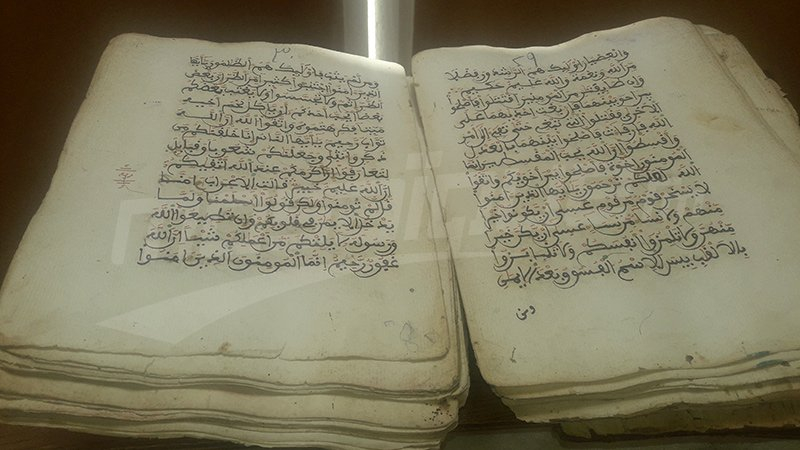 والعصيان اوليك هم الرشدون فضلا
من الله ونعمة والله عليم حكيم
وان طايفتن من المومنين اقتتلوا فاصلحوا
بينهما فان بغت احديهما على
الاخرى فقتلوا التي تبغي حتى تفيء الى امر
الله فان فاءت فاصلحوا بينهما بالعدل
واقسطوا ان الله يحب المقسطين انما
المومنون اخوة فاصلحوا بين اخويكم واتقوا
الله لعلكم ترحمون يايها الذين امنوا
لا يسخر قوم من قوم عسى ان يكونوا خيرا
منهم ولا نساء من نساء عسى ان يكن خيرا
منهن ولا تلمزوا انفسكم ولا تنابزوا
بالالقب بيس الاسم الفسوق بعد الايمن
ومن
ومن لم يتب فاوليك هم الظلمون يايها
الذين امنوا اجتنبوا كثيرا من الظن ان بعض
الظن اثم ولا تجسسوا ولا يغتب بعضكم
بعضا ايحب احدكم ان ياكل لحم اخيه
ميتا فكرهتموه واتقوا الله ان الله
تواب رحيم يايها الناس انا خلقنكم من
ذكر وانثى وجعلنكم شعوبا وقبايل
لتعارفوا ان اكرمكم عند الله اتقيكم
ان الله عليم خبير قالت الاعراب امنا
قل لم تومنوا ولكن قولوا اسلمنا ولما
يدخل الايمن في قلوبكم وان تطيعوا الله
ورسوله لا يلتكم من اعملكم شيئا ان الله
غفور رحيم انما المومنون الذين امنوا